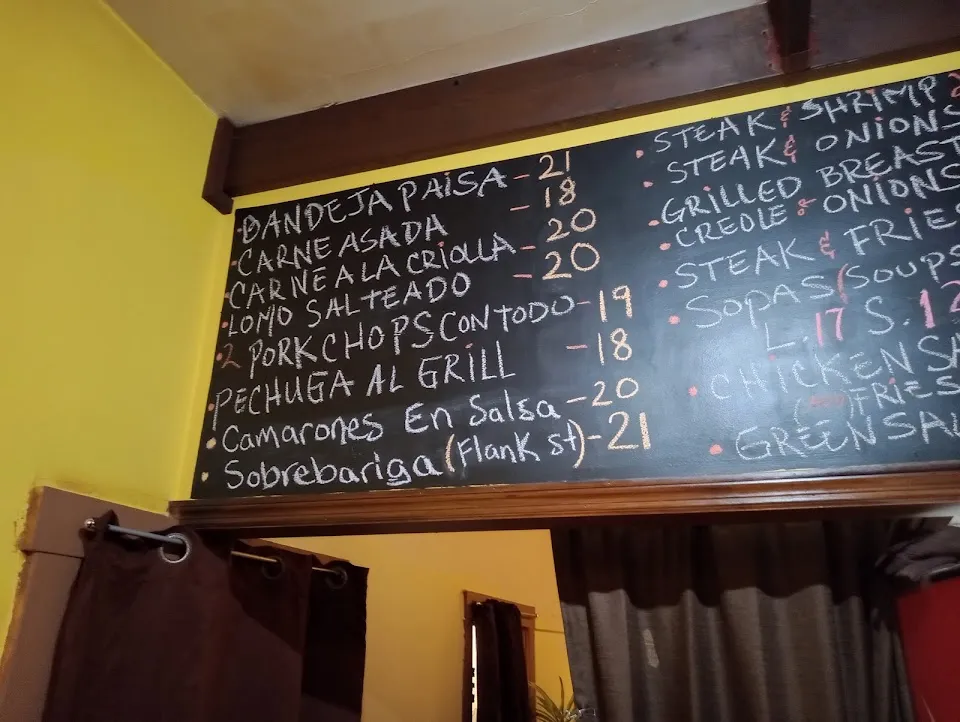 BANDEJA PAISA - 21
CARNE ASADA - 18
CARNE A LA CRIOLLA - 20
LOMO SALTEADO - 20
2 PORK CHOPS CON TODO - 19
PECHUGA AL GRILL - 18
Camarones En Salsa - 20
Sobrebariga (Flank st) - 21
STEAK & SHRIMP
STEAK & ONIONS
GRILLED BREAST
CREOLE & ONIONS
STEAK & FRIES
SOPAS/SOUPS
L. 17 S. 12
CHICKEN SA
FRIES
GREEN SAL